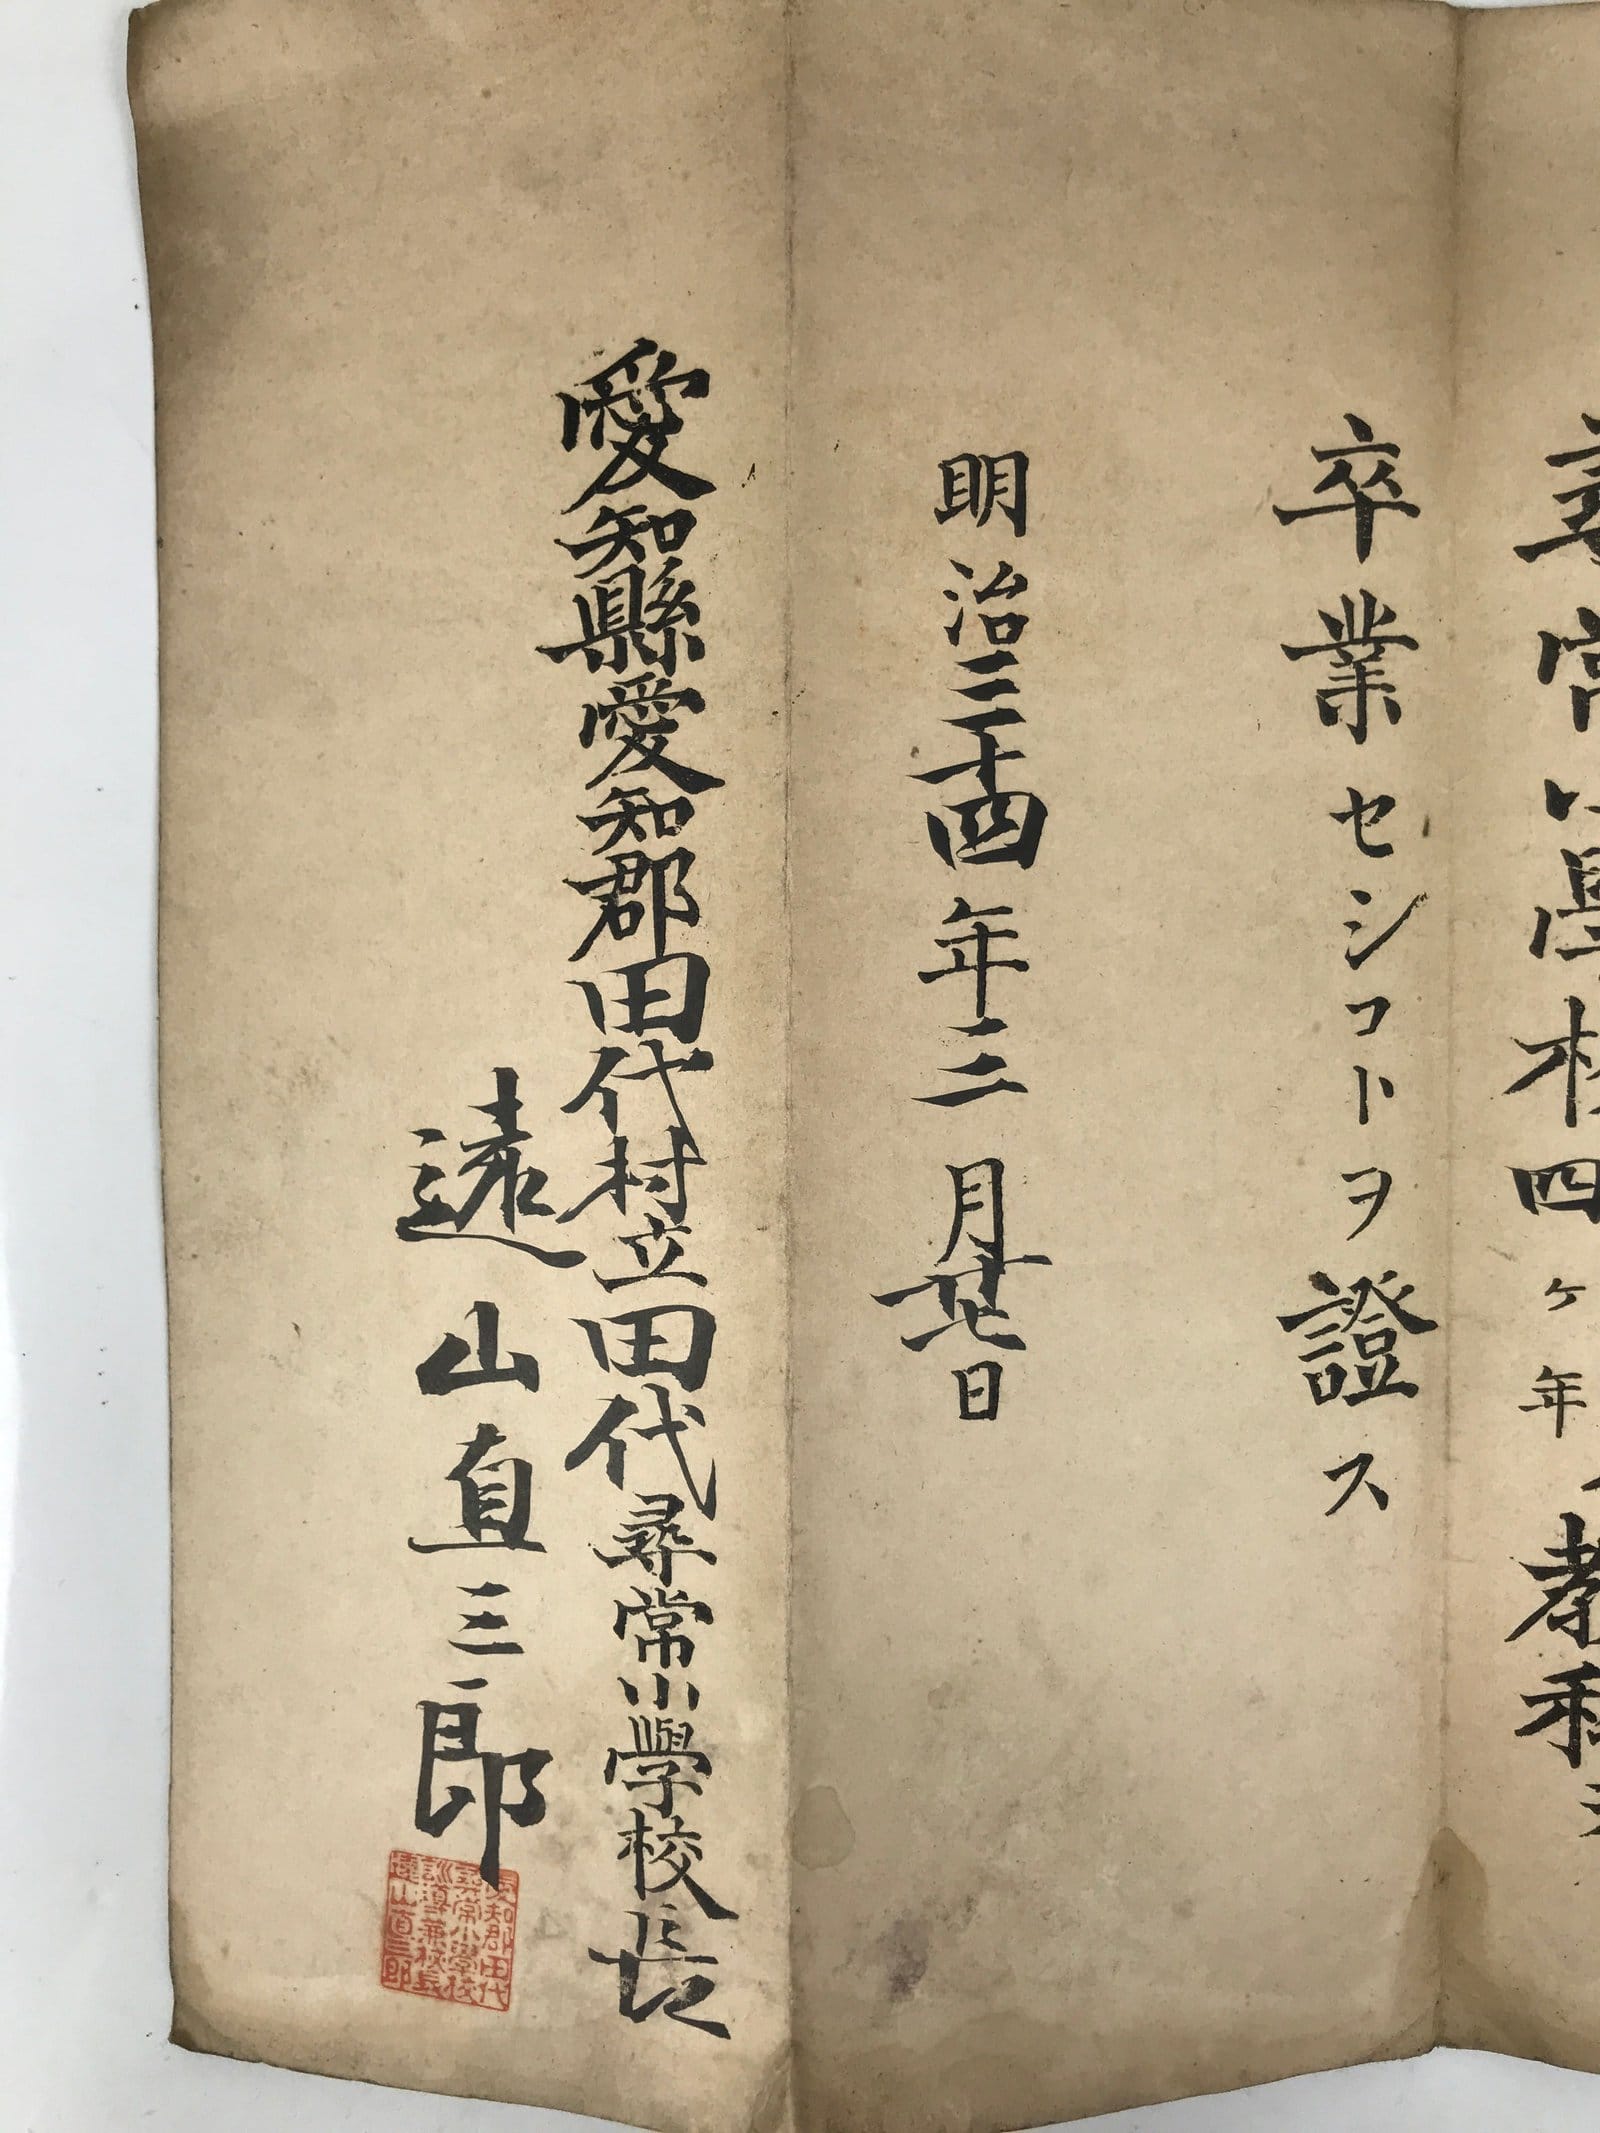 尋常小學校四ヶ年ノ教科ヲ
卒業セシコトヲ證ス
明治三十四年三月廿七日
愛知縣愛知郡田代村立田代尋常小學校長
遠山直三郎
愛知郡田代
尋常小學校
訓導兼校長
遠山直三郎